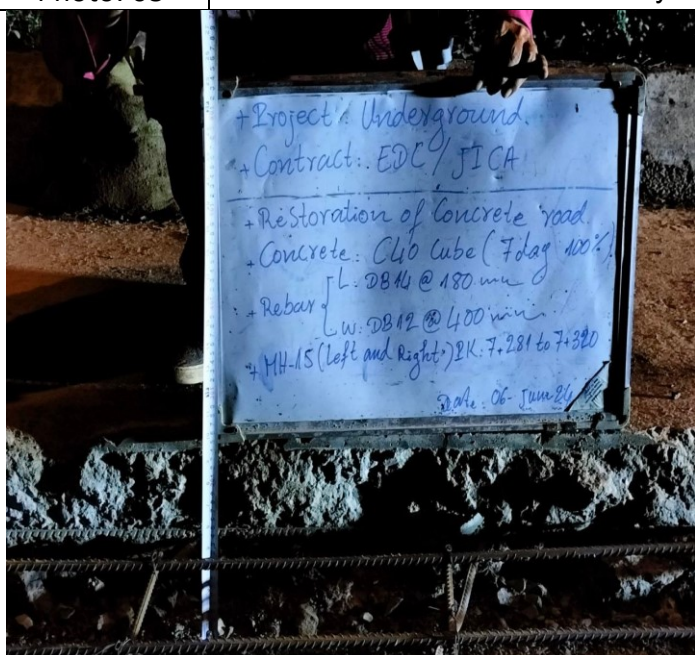 + Project : Underground.
+ Contract: EDC / JICA
+ Restoration of Concrete road.
+ Concrete: C40 Cube (7day 100%)
+ Rebar L: DB14 @ 180 mm
W: DB12 @ 400 mm
+ MH-15 (Left and Right) PK: 7+281 to 7+320
Date: 06- June 24